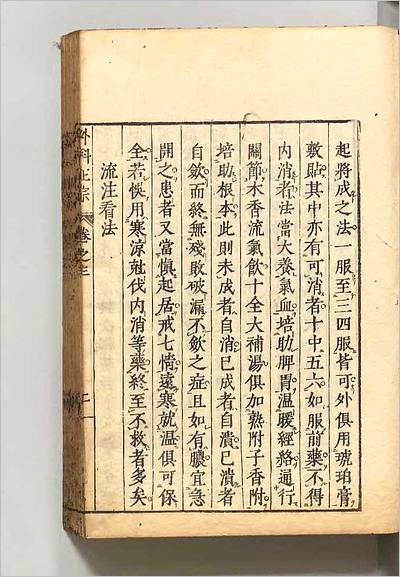 起將成之法一服至三四服皆可外俱用琥珀膏
敷貼其中亦有可消者十中五六如服前藥不得
內消者法當大養氣血培助脾胃溫暖經絡通行
關節木香流氣飲十全大補湯俱加熟附子香附
培助根本此則未成者自消已成者自潰已潰者
自斂而終無殘敗破漏不斂之症且如有膿宜急
開之患者又當慎起居戒七情遠寒就溫俱可保
全若悞用寒涼尅伐內消等藥終至不救者多矣
流注看法
外科正宗 卷之三
二一